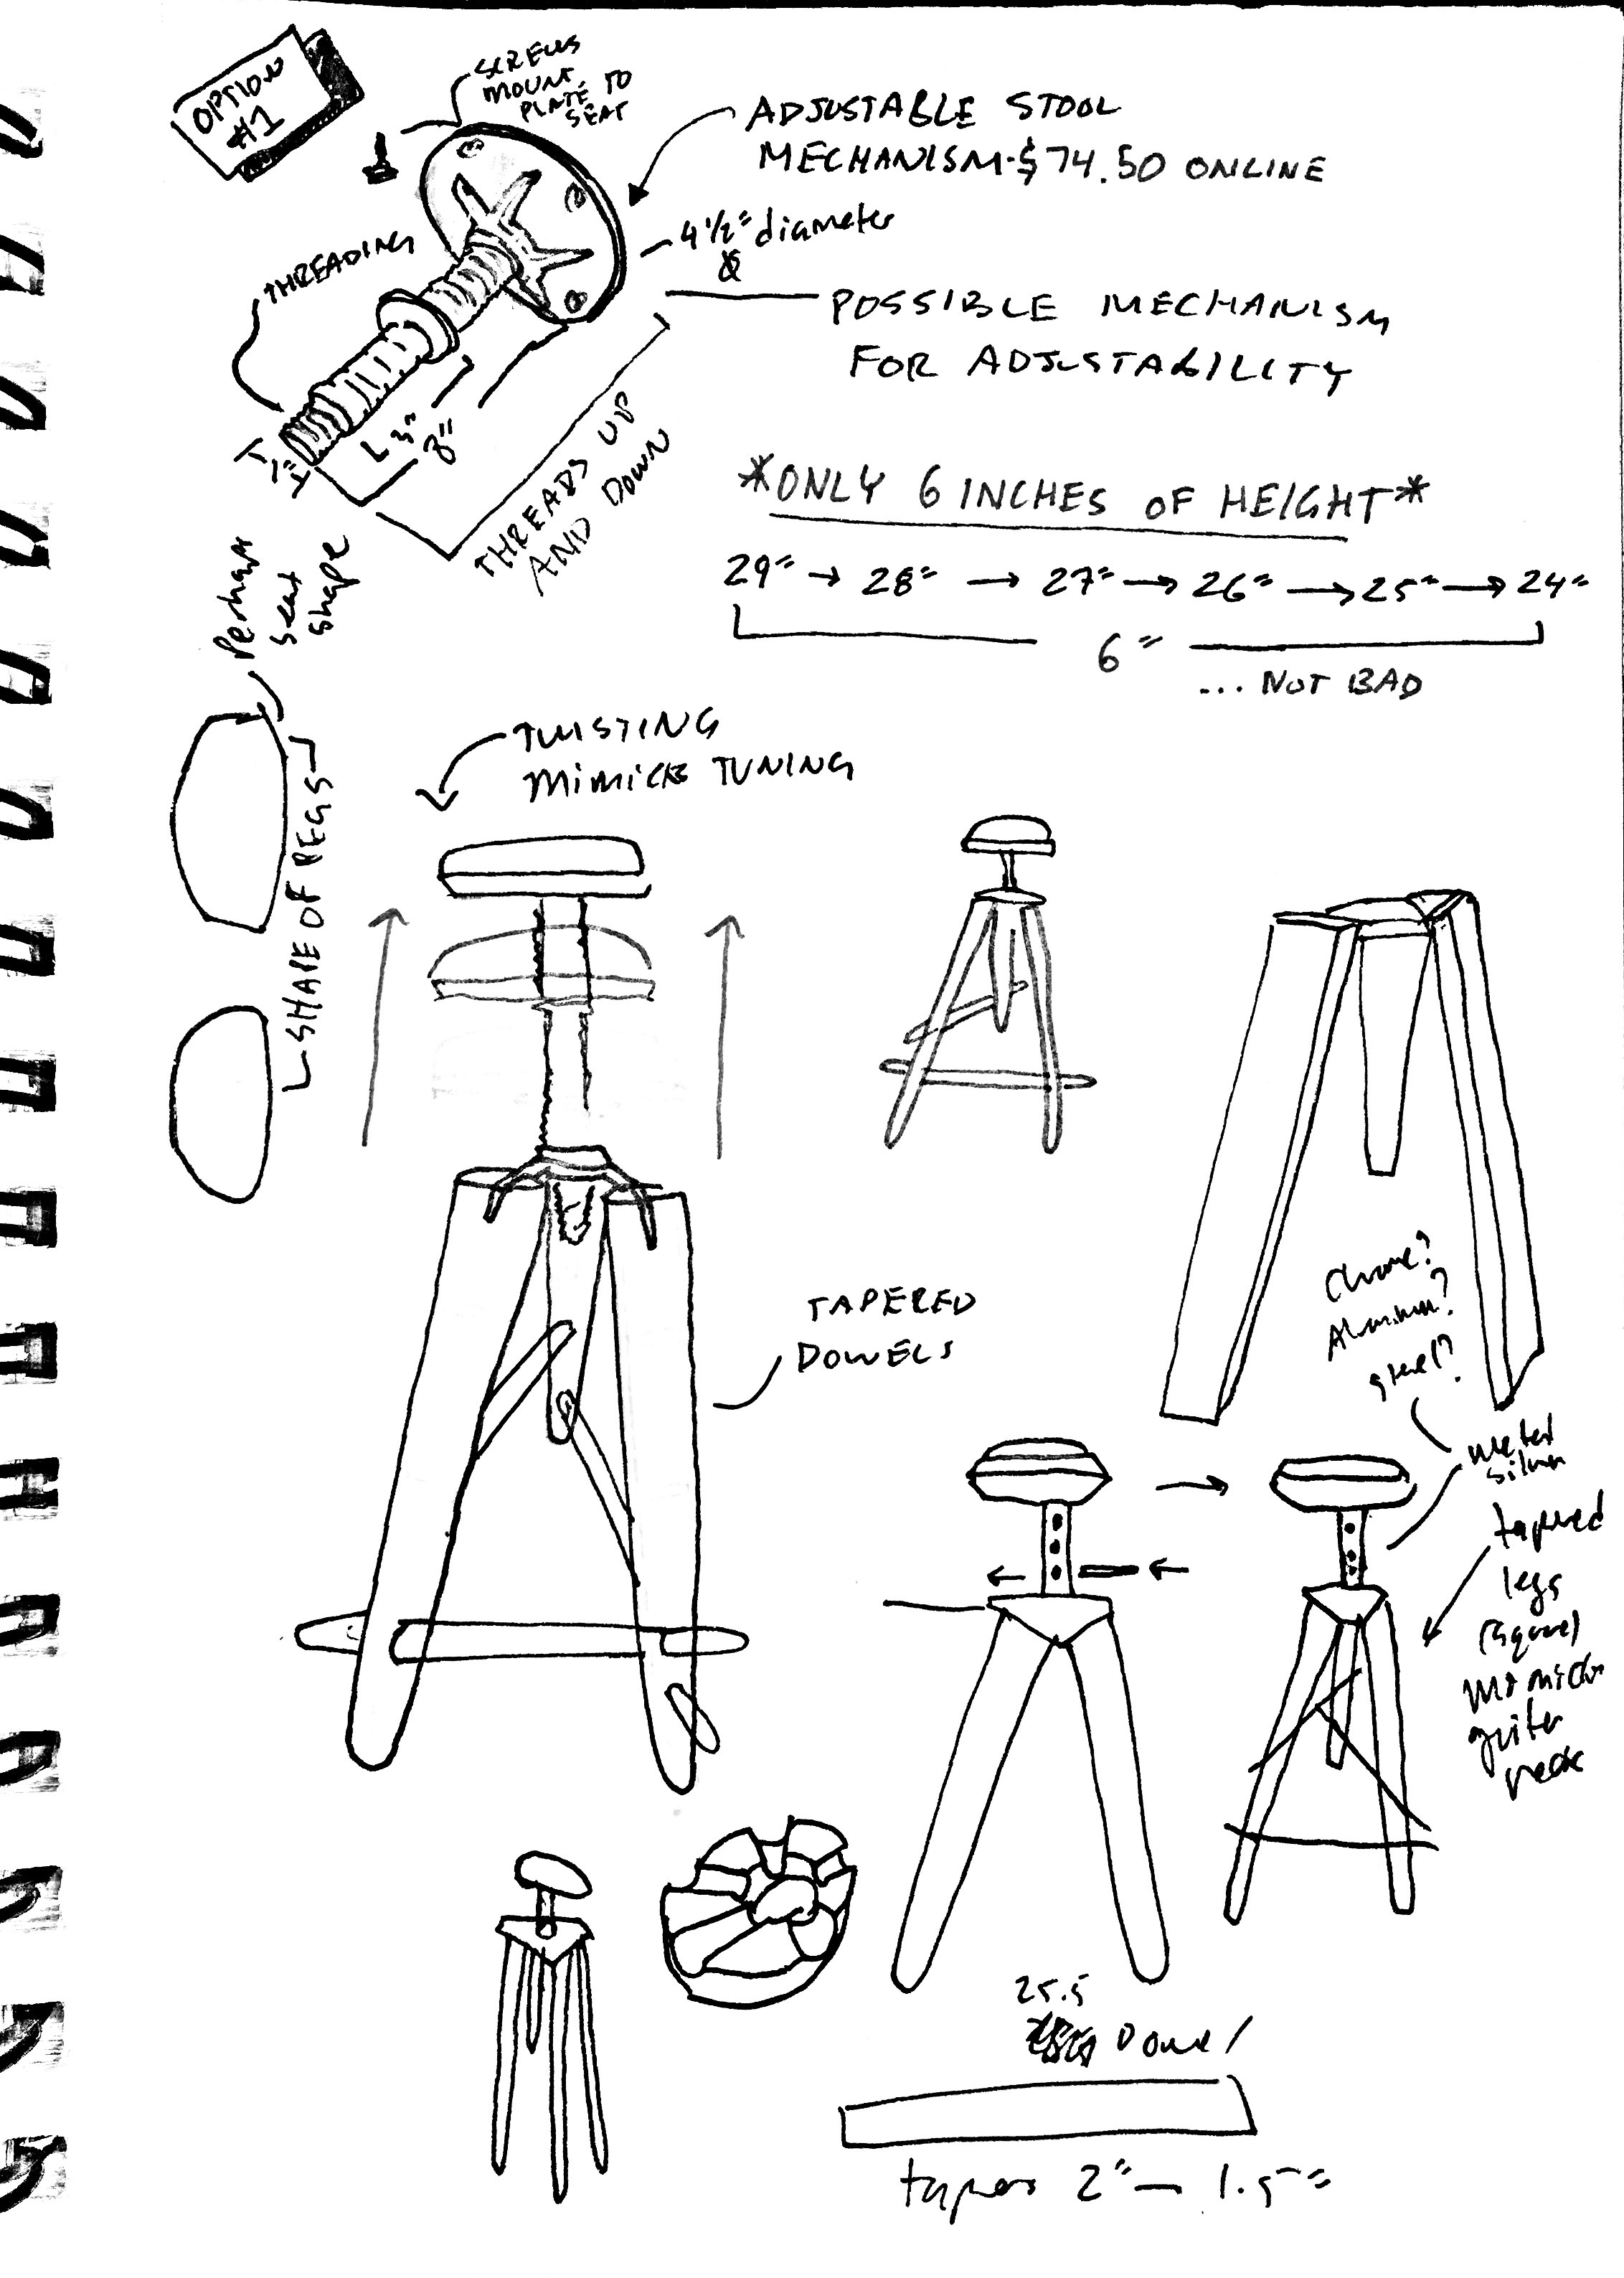 OPTION
#1
SCREWS
MOUNT
PLATE TO
SEAT
ADJUSTABLE STOOL
MECHANISM-$74.50 ONLINE
THREADING
4 1/2" diameter
POSSIBLE MECHANISM
FOR ADJUSTABILITY
3"
8"
1"
THREADS UP
AND DOWN
*ONLY 6 INCHES OF HEIGHT*
29" → 28" → 27" → 26" → 25" → 24"
6"
... NOT BAD
Perhaps
seat
shape
SHAPE OF PEGS
TWISTING
MIMICKS TUNING
TAPERED
DOWELS
Chrome?
Aluminum?
steel?
metal
silver
tapered
legs
(square)
mimicks
guiter
neck
25.5
Dowel
tapers 2" — 1.5"